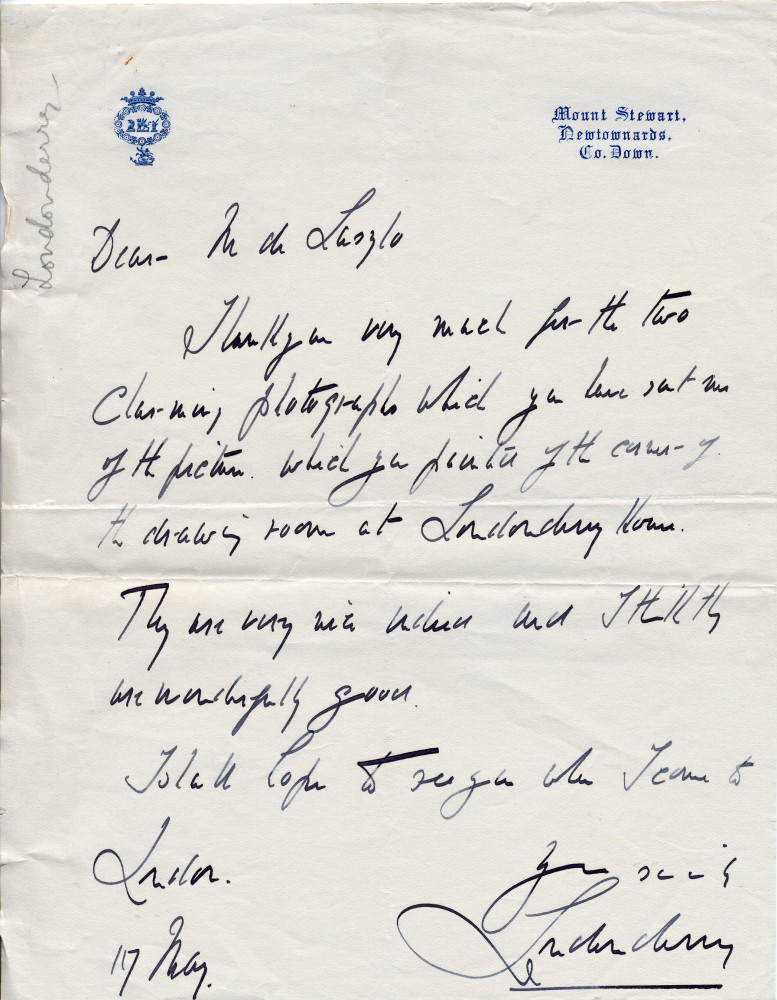 Londonderry
Mount Stewart,
Newtownards,
Co. Down.
Dear M de Laszlo
Thank you very much for the two
Charming photographs which you have sent me
of the picture. which you painted of the corner of
the drawing room at Londonderry House.
They are very nice indeed and I think they
are wonderfully good.
I shall hope to see you when I come to
London.
Yrs sincly
Londonderry
17 May.